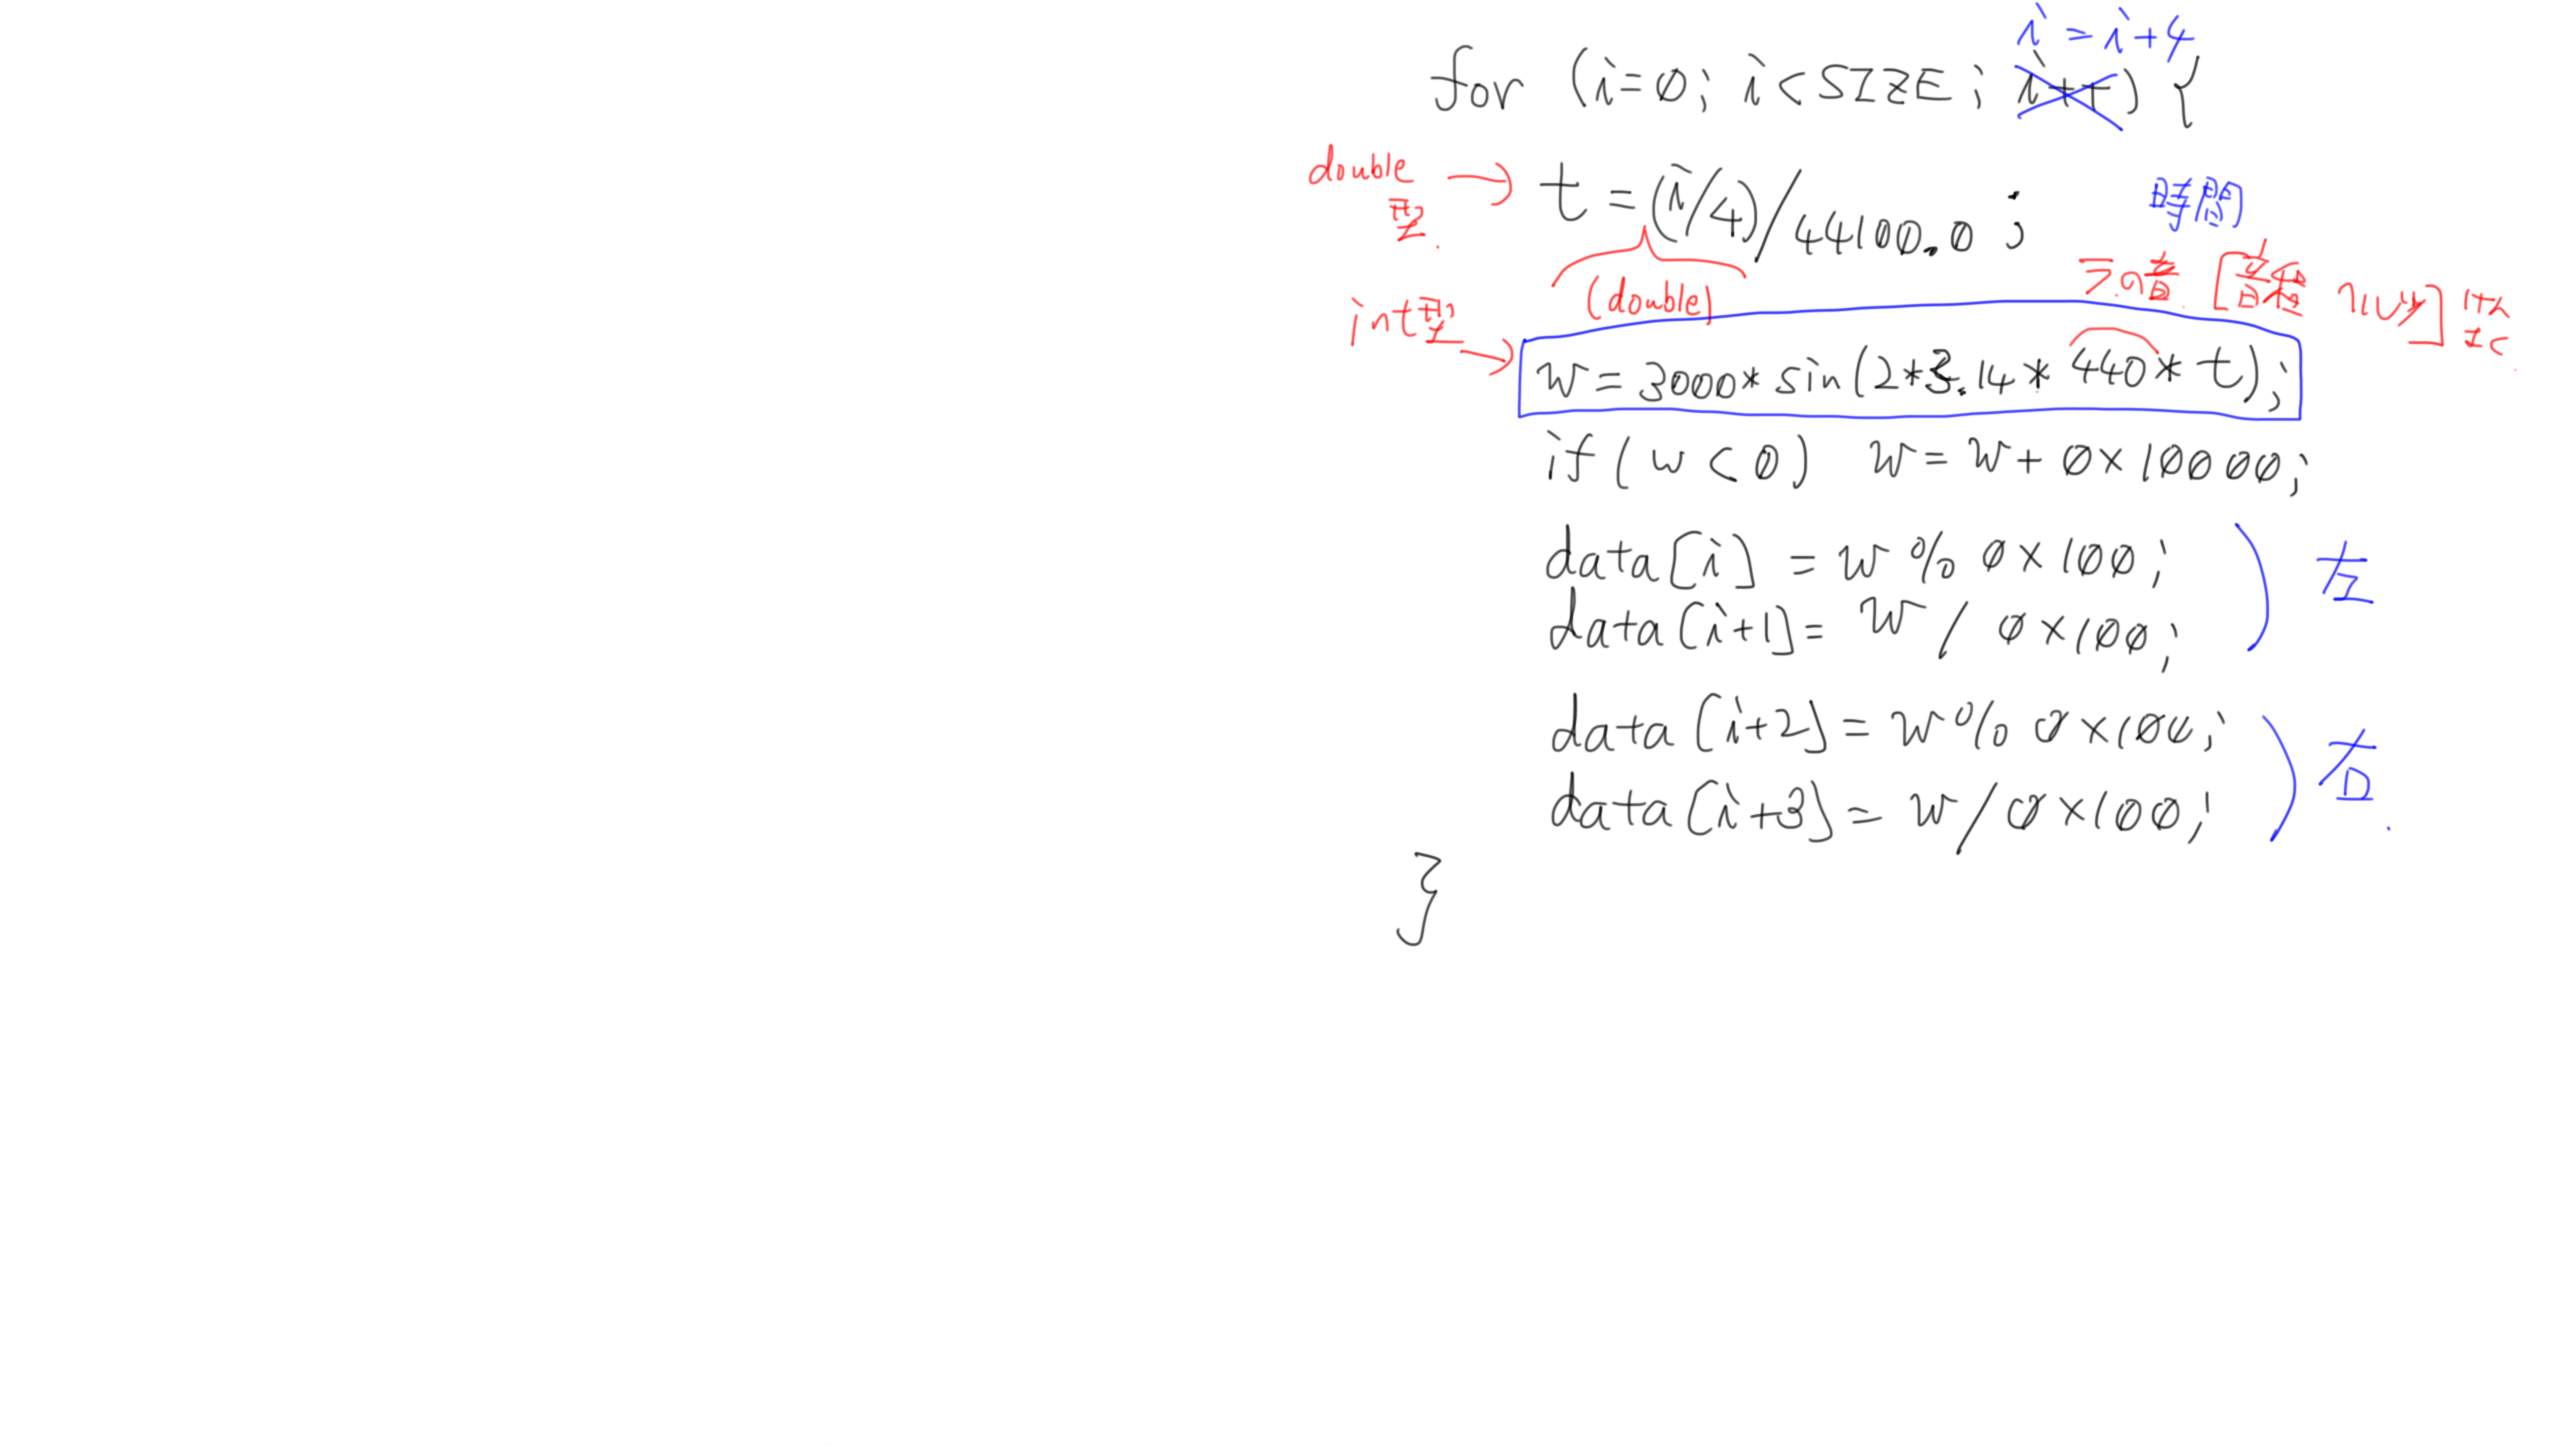 i=i+4
for (i=0; i<SIZE; i++) {
double型 → t=(i/4)/44100.0; 時間
(double)
ラの音 [音程 ソレ
int型 → w=3000*sin(2*3.14*440*t);
if(w<0) w=w+0x10000;
data[i]=w%0x100;
data[i+1]=w/0x100; 左
data[i+2]=w%0x100;
data[i+3]=w/0x100; 右.
}